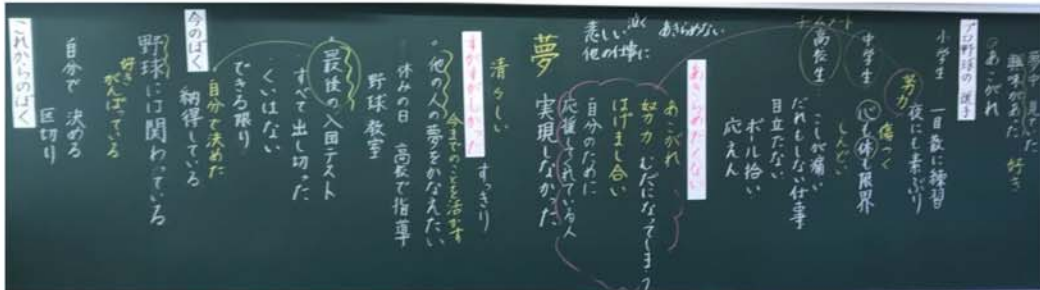 夢中 見ていた
興味があった 好き
あこがれ
プロ野球の選手
小学生 一日数に練習
努力 夜にも素ぶり
傷つく
中学生 心も体も限界
しんどい
チームメート
高校生 こしが痛い
だれもしない仕事
目立たない
ボール拾い
応えん
あきらめたくない
あこがれ
努力 むだになってしまう
はげまし合い
自分のために
応援してくれている人
悲しい 泣く あきらめない
他の仕事に
夢 実現しなかった
清々しい すっきり
すがすがしかった
今までのことを活かす
他の人の夢をかなえたい
休みの日 高校で指導
野球教室
最後の入団テスト
すべて出し切った
くいはない
できる限り
自分で決めた
今のぼく 納得している
野球には関わっている
好き
がんばっている
自分で 決める
区切り
これからのぼく